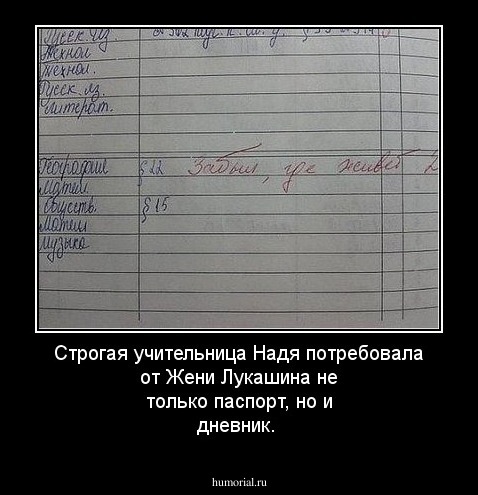 Русск. яз.
Технол
Технол.
Русск. яз.
Литерат.
География § 22 Забыл, где живет 2
Матем.
Обществ. § 15
Матем
Музыка
Строгая учительница Надя потребовала
от Жени Лукашина не
только паспорт, но и
дневник.
humorial.ru